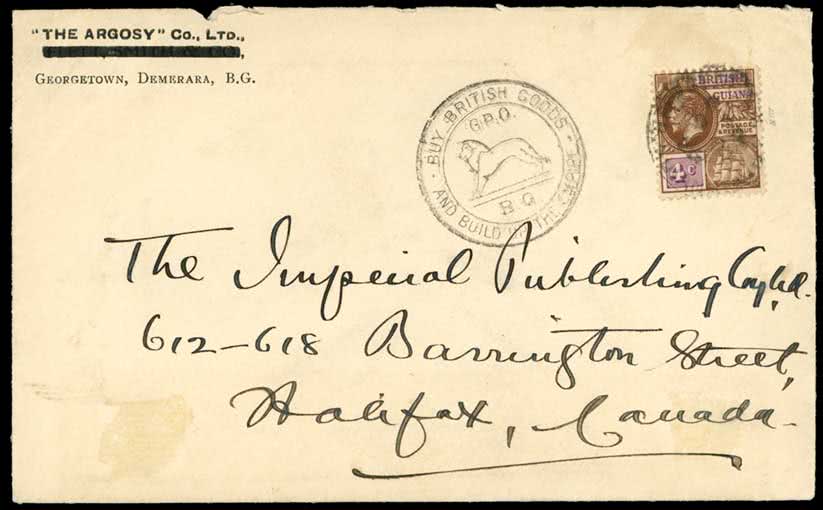 "THE ARGOSY" Co., LTD.,
SMITH & CO.,
GEORGETOWN, DEMERARA, B.G.
BUY BRITISH GOODS
AND BUILD UP THE EMPIRE
G.P.O.
B G
BRITISH
GUIANA
POSTAGE
& REVENUE
4c
The Imperial Publishing Coy Ltd.
612-618 Barrington Street,
Halifax, Canada.